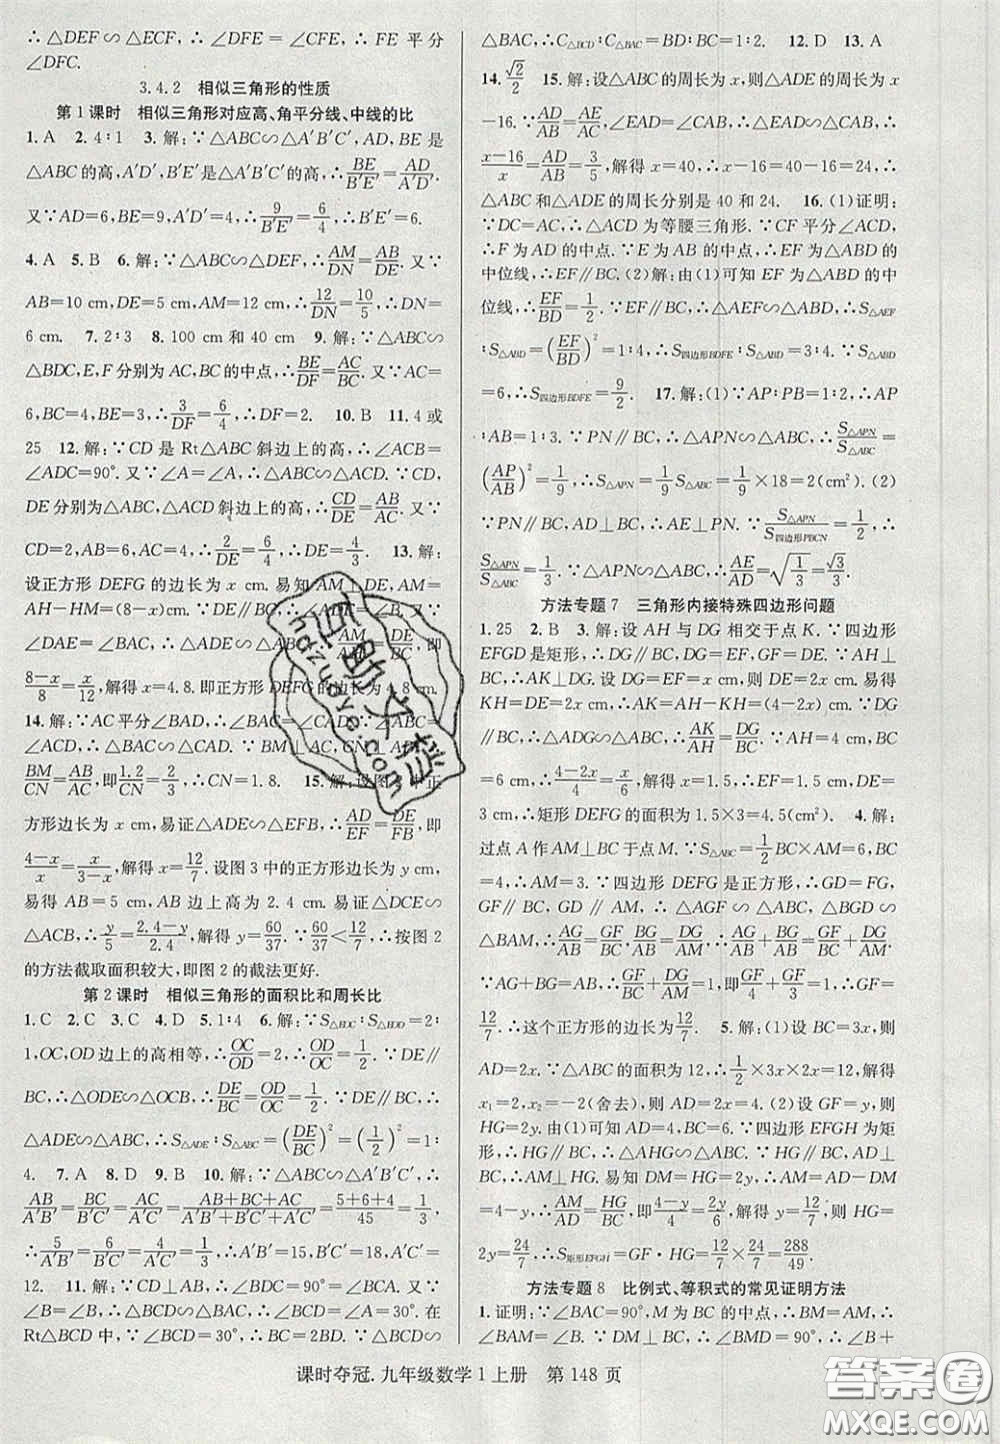 ∴△DEF∽△ECF,∴∠DFE=∠CFE,∴FE平分
∠DFC.
3.4.2 相似三角形的性质
第1课时 相似三角形对应高、角平分线、中线的比
1. A 2. 4∶1 3. 解:∵△ABC∽△A′B′C′,AD,BE是
△ABC的高,A′D′,B′E′是△A′B′C′的高,∴BE/B′E′=AD/A′D′.
又∵AD=6,BE=9,A′D′=4,∴9/B′E′=6/4,∴B′E′=6.
4. A 5. B 6. 解:∵△ABC∽△DEF,∴AM/DN=AB/DE.又∵
AB=10 cm,DE=5 cm,AM=12 cm,∴12/DN=10/5,∴DN=
6 cm. 7. 2∶3 8. 100 cm和40 cm 9. 解:∵△ABC∽
△BDC,E,F分别为AC,BC的中点,∴BE/DF=AC/BC.又∵AC=
6,BC=4,BE=3,∴3/DF=6/4,∴DF=2. 10. B 11. 4或
25 12. 解:∵CD是Rt△ABC斜边上的高,∴∠ACB=
∠ADC=90°.又∵∠A=∠A,∴△ABC∽△ACD.∵CD,
DE分别为△ABC,△ACD斜边上的高,∴CD/DE=AB/AC.又∵
CD=2,AB=6,AC=4,∴2/DE=6/4,∴DE=4/3. 13. 解:
设正方形DEFG的边长为x cm.易知AM=
AH-HM=(8-x)cm.易
∠DAE=∠BAC,∴△ADE AM/AH 即
(8-x)/8=x/12,解得x=4.8.即正方形DEFG的边长为4.8 cm.
14. 解:∵AC平分∠BAD,∴∠BAC=∠CAD.
∴△ABC∽△CAD.∵BM⊥AC,CN⊥
BM/CN=AB/AC,即1.2/CN=2/3,∴CN=1.8. 15. 解:设图 中正
方形边长为x cm,易证△ADE∽△EFB,∴AD/EF=DE/FB,即
(4-x)/x=x/(3-x),解得x=12/7.设图3中的正方形边长为y cm,
易得AB=5 cm,AB边上的高为2.4 cm.易证△DCE∽
△ACB,∴y/5=(2.4-y)/2.4,解得y=60/37.∵60/37<12/7,∴按图2
的方法截取面积较大,即图2的截法更好.
第2课时 相似三角形的面积比和周长比
1. C 2. C 3. C 4. D 5. 1∶4 6. 解:∵S△BOC∶S△BOD=2∶
1,OC,OD边上的高相等,∴OC/OD=2,∴OD/OC=1/2.∵DE∥
BC,∴△ODE∽△OCB,∴DE/BC=OD/OC=1/2.∵DE∥BC,∴
△ADE∽△ABC,∴S△ADE∶S△ABC=(DE/BC)²=(1/2)²=1∶
4. 7. A 8. D 9. B 10. 解:∵△ABC∽△A′B′C′,∴
AB/A′B′=BC/B′C′=AC/A′C′,∴(AB+BC+AC)/(A′B′+B′C′+A′C′)=(5+6+4)/45=1/3,
∴5/A′B′=6/B′C′=4/A′C′=1/3,∴A′B′=15,B′C′=18,A′C′=
12. 11. 解:∵CD⊥AB,∴∠BDC=90°=∠BCA.又∵
∠B=∠B,∴△BCD∽△BAC,∴∠BCD=∠A=30°.在
Rt△BCD中,∵∠BCD=30°,∴BC=2BD.∵△BCD∽
△BAC,∴C△BCD∶C△BAC=BD∶BC=1∶2. 12. D 13. A
14. √2/2 15. 解:设△ABC的周长为x,则△ADE的周长为x
-16.∵AD/AB=AE/AC,∠EAD=∠CAB,∴△ADE∽△ABC,∴
(x-16)/x=AD/AB=3/5,解得x=40,∴x-16=40-16=24,∴
△ABC和△ADE的周长分别是40和24. 16. (1)证明:
∵DC=AC,∴△ACD为等腰三角形.∵CF平分∠ACD,
∴F为AD的中点.∵E为AB的中点,∴EF为△ABD的
中位线,∴EF∥BC.(2)解:由(1)可知EF为△ABD的中
位线,∴EF/BD=1/2.∵EF∥BC,∴△AEF∽△ABD,∴S△AEF
∶S△ABD=(EF/BD)²=1∶4,∴S四边形BDFE=3/4S△ABD.∵S△ABD
=6,∴S四边形BDFE=9/2. 17. 解:(1)∵AP∶PB=1∶2,∴AP
∶AB=1∶3.∵PN∥BC,∴△APN∽△ABC,∴S△APN/S△ABC=
(AP/AB)²=1/9,∴S△APN=1/9S△ABC=1/9×18=2(cm²).(2)
∵PN∥BC,AD⊥BC,∴AE⊥PN.∵S△APN/S四边形PBCN=1/2,∴
S△APN/S△ABC=1/3.∵△APN∽△ABC,∴AE/AD=√(1/3)=√3/3.
方法专题7 三角形内接特殊四边形问题
1. 25 2. B 3. 解:设AH与DG相交于点K.∵四边形
EFGD是矩形,∴DG∥BC,DE⊥BC,GF⊥BC.∵AH⊥
BC,∴AK⊥DG.设DE=x cm,则DG=EF=2x cm.易得
KH=DE=x cm,AK=AH-KH=(4-x)cm.
∵DG∥BC,∴△ADG∽△ABC,∴AK/AH=DG/BC.∵AH=4 cm,BC
=6 cm,∴(4-x)/4=2x/6,解得x=1.5,∴DG=3 cm,DE=
1.5 cm,∴矩形DEFG的面积为1.5×3=4.5(cm²). 4. 解:
过点A作AM⊥BC于点M.∵S△ABC=1/2BC×AM=6,BC=
4,∴AM=3.∵四边形DEFG是正方形,∴GD=FG,
GF∥BC,GD∥AM,∴△AGF∽△ABC,△BGD∽
△BAM,∴AG/AB=GF/BC,BG/AB=DG/AM,∴AG/AB+BG/AB=GF/BC+DG/AM
∵AG/AB+BG/AB=1,∴GF/BC+DG/AM=1,即GF/4+GF/3=1,∴GF=
12/7.∴这个正方形的边长为12/7. 5. 解:(1)设BC=3x,则
AD=2x.∵△ABC的面积为12,∴1/2×3x×2x=12,解得
x₁=2,x₂=-2(舍去),则AD=2x=4.(2)设GF=y,则
HG=2y.由(1)知AD=4,BC=6.∵四边形EFGH为矩
形,∴HG∥BC,∴△AHG∽△ABC,∠AMG=∠ADC.∵AD⊥
BC,∴AM⊥HG.易知DM=HG=y,则AM=AD-DM=
4-y.∴AM/AD=HG/BC,∴(4-y)/4=2y/6,解得y=12/7,则HG=
2y=24/7,∴S矩形EFGH=GF·HG=12/7×24/7=288/49.
方法专题8 比例式、等积式的常见证明方法
1. 证明:∵∠BAC=90°,M为BC的中点,∴BM=AM,∴
∠B=∠BAM.∵∠BAC=90°,∴∠B+
课时夺冠.九年级数学1上册 第148页
互助文档
hdzuoye.com
答案圈
MXQE.COM